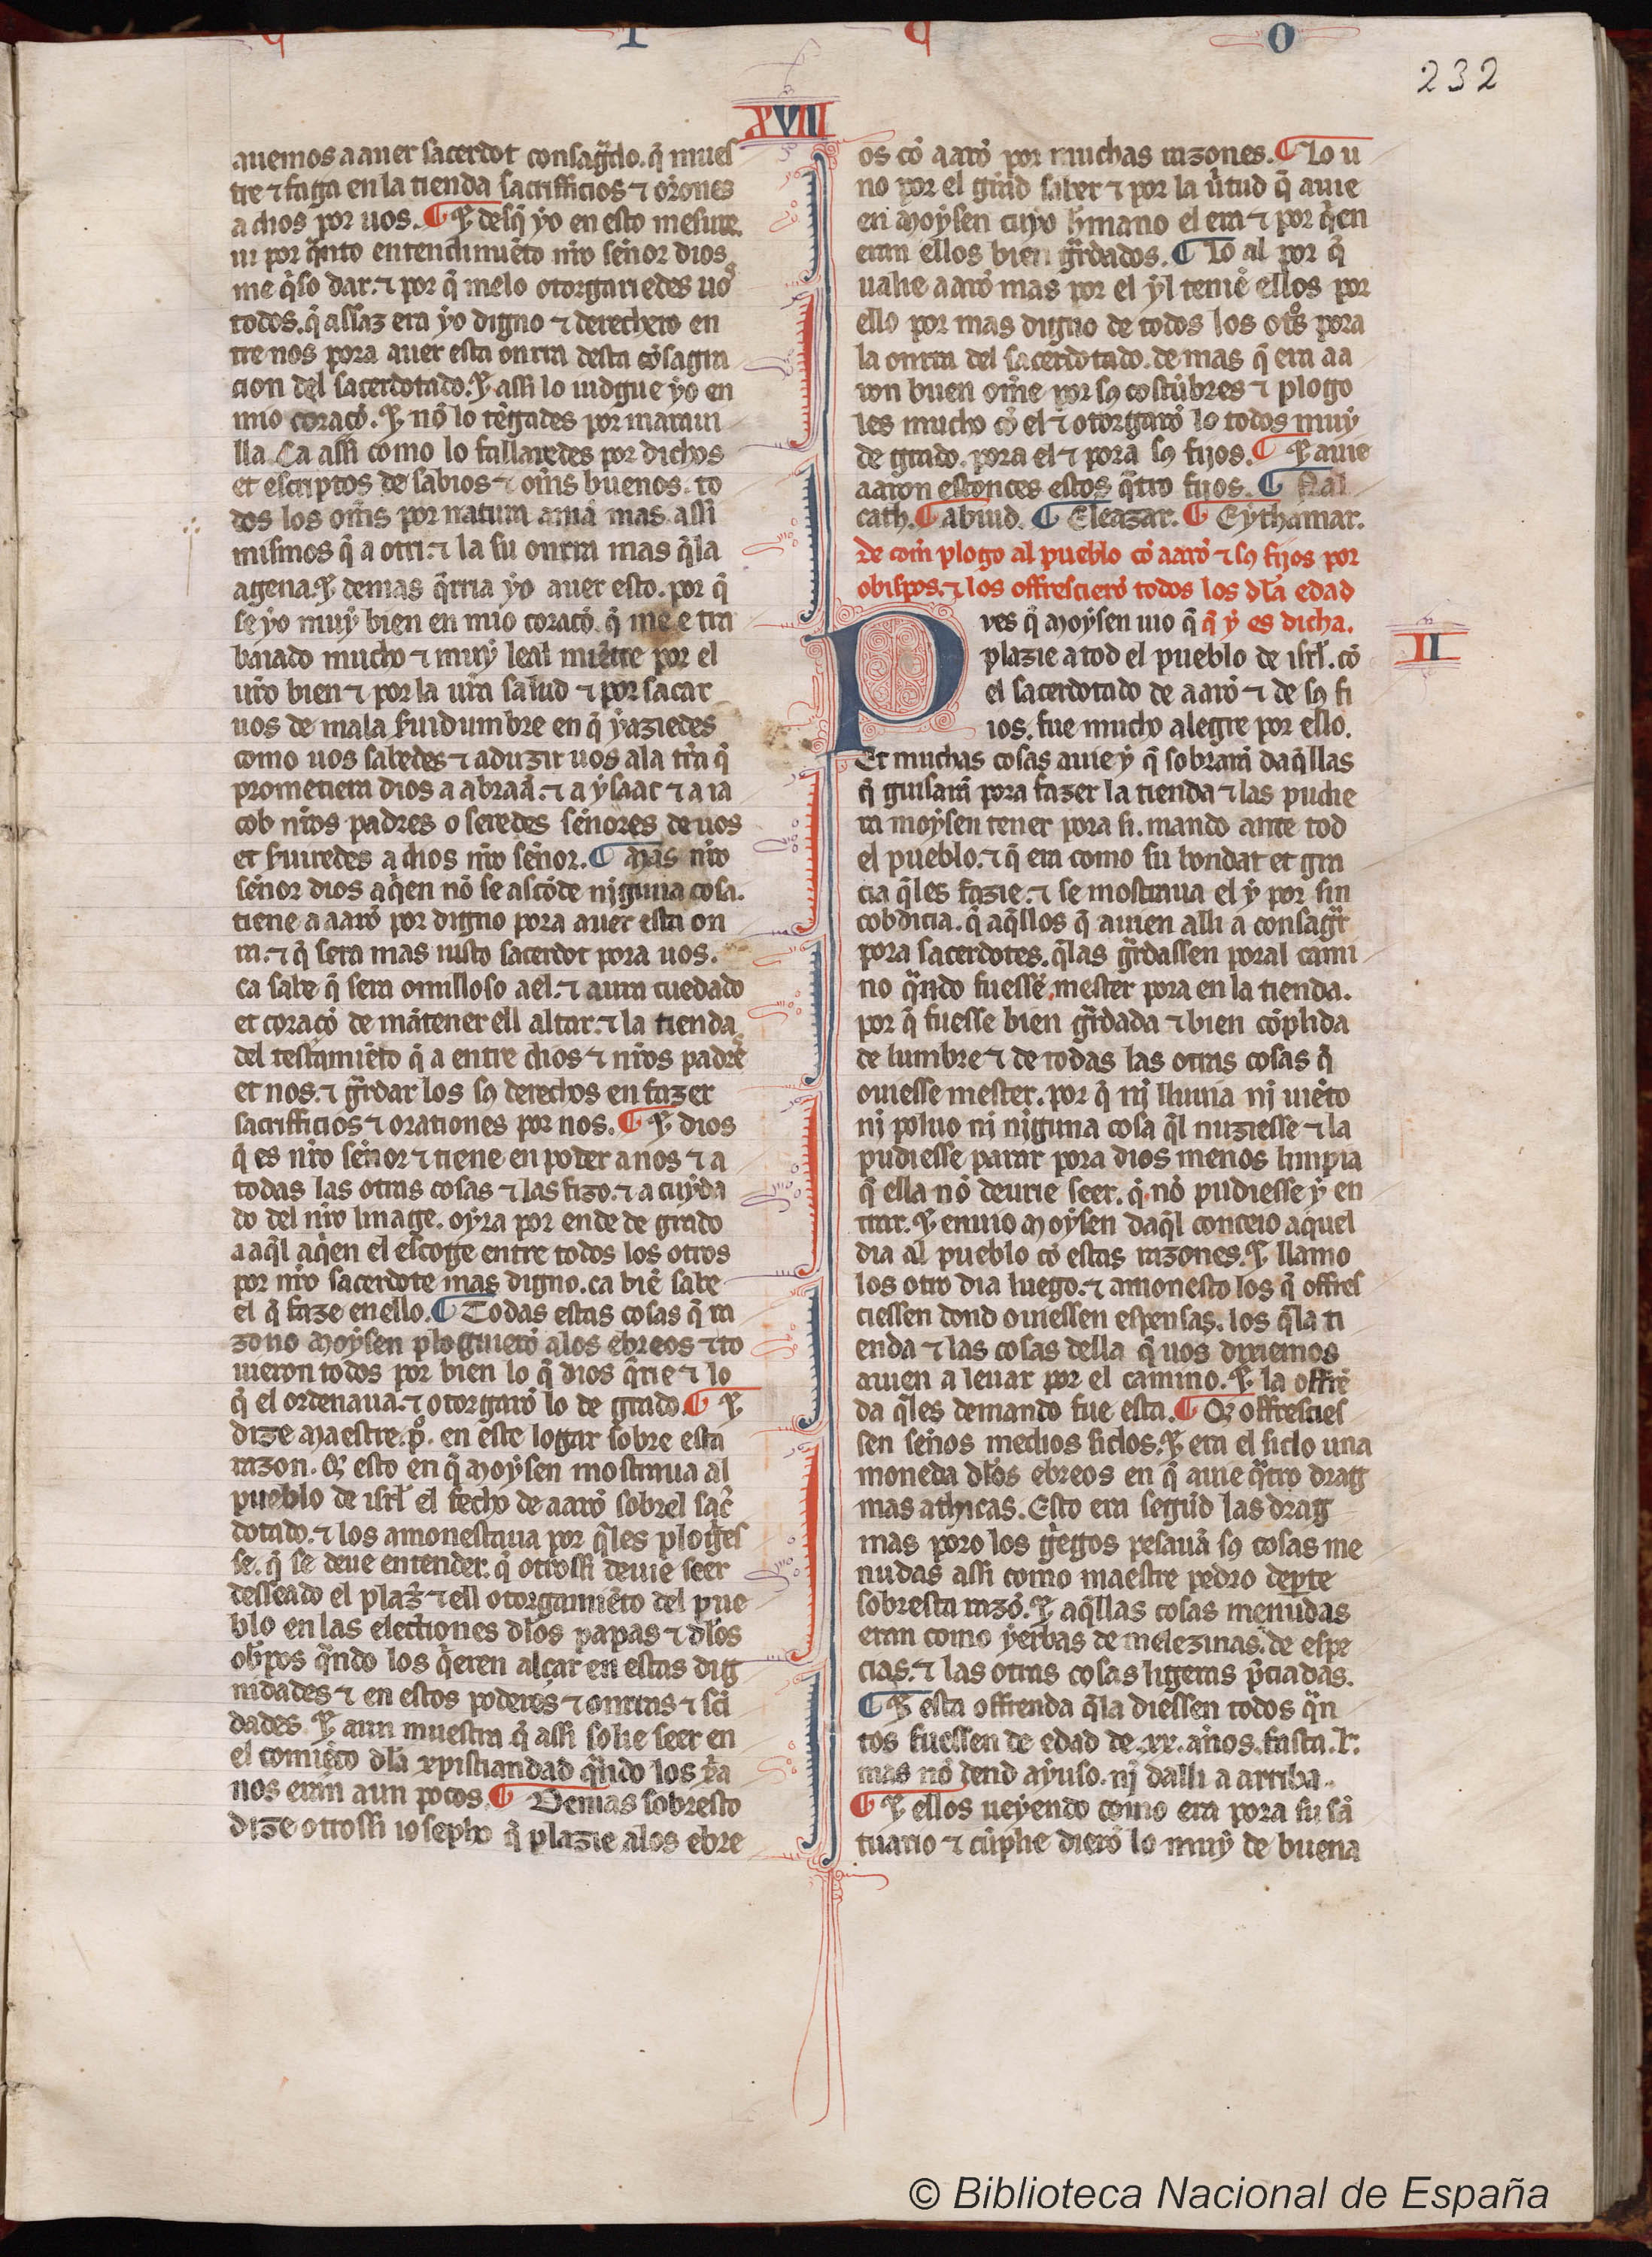 232
XVII
auemos a auer sacerdot consagᷓdo. q̄ mues
tre ⁊ faga en la tienda sacrifficios ⁊ or̄ones
a dios por uos. ¶ Et desq̄ yo en esto mesure.
ui por qᷓnto entendimiẽto nr̄o sen̄or dios
me q̇so dar. ⁊ por q̄ melo otorgariedes uos
todos. q̄ assaz era yo digno ⁊ derechero en
tre nos pora auer esta onrra desta cōsagra
cion del sacerdotado. Et assi lo iudgue yo en
mio coraçō. Et nō lo tẽgades por maraui
lla. Ca assi como lo fallaredes por dichos
et escriptos de sabios ⁊ om̄s buenos. to
dos los om̄s por natura amā mas assi
mismos q̄ a otri. ⁊ la su onrra mas q̄la
agena. Et demas q̄rria yo auer esto. por q̄
se yo muy bien en mio coraçō. q̄ me e tra
baiado mucho ⁊ muy leal miẽtre por el
ur̄o bien ⁊ por la ur̄a salud ⁊ por sacar
uos de mala s̄uidumbre en q̄ yaziedes
como uos sabedes ⁊ aduzir uos ala tr̄ra q̄
prometiera dios a abraā. ⁊ a ysaac ⁊ a ia
cob nr̄os padres o seredes sen̄ores de uos
et s̄uiredes a dios nr̄o sen̄or. ¶ Mas nr̄o
sen̄or dios aq̇en nō se ascōde nīguna cosa.
tiene a aarō por digno pora auer esta on
rra. ⁊ q̄ sera mas iusto sacerdot pora uos.
ca sabe q̄ sera omilloso a el. ⁊ aura cuedado
et coraçō de mātener ell altar. ⁊ la tienda
del testamiẽto q̄ a entre dios ⁊ nr̄os padres
et nos. ⁊ gᷓrdar los sꝯ derechos en fazer
sacrifficios ⁊ orationes por nos. ¶ Et dios
q̄ es nr̄o sen̄or ⁊ tiene en poder a nos ⁊ a
todas las otras cosas ⁊ las fizo. ⁊ a cuyda
do del nr̄o linage. oyra por ende de grado
a aq̄l aq̇en el escoge entre todos los otros
por nr̄o sacerdote mas digno. ca biẽ sabe
el q̄ faze en ello. ¶ Todas estas cosas q̄ ra
zono Moysen ploguierō alos ebreos ⁊ to
uieron todos por bien lo q̄ dios q̄rie ⁊ lo
q̄ el ordenaua. ⁊ otorgarō lo de grado. ¶ Et
dize Maestre. p̊. en este logar sobre esta
razon. Q̄ esto en q̄ Moysen mostraua al
pueblo de isrl̄ el fecho de aarō sobrel sac̄
dotado. ⁊ los amonestaua por q̄les plogies
se. q̄ se deue entender. q̄ otrossi deuie seer
desseado el plaz̄ ⁊ ell otorgamiẽto del pue
blo en las electiones dl̄os papas ⁊ dl̄os
ob̄pos qᷓndo los q̇eren alçar en estas dig
nidades ⁊ en estos poderes ⁊ onrras ⁊ sc̄i
dades. Et aun muestra q̄ assi solie seer en
el comiẽço dl̄a xp̄istiandad qᷓndo los xp̄ia
nos eran aun pocos. ¶ Demas sobresto
dize otrossi iosepho q̄ plazie alos ebre
os cō aarō por muchas razones. ¶ Lo u
no por el grād saber ⁊ por la ūtud q̄ auie
en Moysen cuyo h̄mano el era ⁊ por q̇en
eran ellos bien gᷓrdados. ¶ Lo al por q̄
ualie aarō mas por el yl teniẽ ellos por
ello por mas digno de todos los otros pora
la onrra del sacerdotado. de mas q̄ era aa
ron buen om̄e por sꝯ costūbres ⁊ plogo
les mucho cō el ⁊ otorgarō lo todos muy
de grado. pora el ⁊ pora sꝯ fijos. ¶ Et auie
aaron estonces estos qᷓtro fijos. ¶ Nal
cath. ¶ abiud. ¶ Eleazar. ¶ Eythamar.
De com̄ plogo al pueblo cō aarō ⁊ sꝯ fijos por
obispos. ⁊ los offrescierō todos los dl̄a edad
q̄ y es dicha.
II
Pues q̄ Moysen uio q̄
plazie a tod el pueblo de isrl̄. cō
el sacerdotado de aarō ⁊ de sꝯ fi
ios. fue mucho alegre por ello.
Et muchas cosas auie y q̄ sobrarā daq̄llas
q̄ guisarā pora fazer la tienda ⁊ las pudie
ra moysen tener pora si. mando ante tod
el pueblo. ⁊ q̄ era como su bondat et gra
cia q̄les fazie. ⁊ se mostraua el y por sin
cobdicia. q̄ aq̄llos q̄ auien alli a consagᷓr
pora sacerdotes. q̄las gᷓrdassen poral cami
no qᷓndo fuessẽ mester pora en la tienda.
por q̄ fuesse bien gᷓrdada ⁊ bien cōplida
de lumbre ⁊ de todas las otras cosas q̄
ouiesse mester. por q̄ nj lluuia nj uiẽto
nj poluo ni nīguna cosa q̄l nuziesse ⁊ la
pudiesse parar pora dios menos limpia
q̄ ella nō deurie seer. q̄ nō pudiesse y en
trar. Et enuio Moysen daq̄l conceio aquel
dia al pueblo cō estas razones. Et llamo
los otro dia luego. ⁊ amonesto los q̄ offres
ciessen dond ouiessen espensas. los q̄la ti
enda ⁊ las cosas della q̄ uos dixiemos
auien a leuar por el camino. Et la offrē
da q̄les demando fue esta. ¶ Q̄ offrescies
sen sen̄os medios siclos. Et era el siclo una
moneda dl̄os ebreos en q̄ auie qᷓtro drag
mas athicas. Esto era segūd las drag
mas poro los gͥegos pesauā sꝯ cosas me
nudas assi como maestre pedro depte
sobresta razō. Et aq̄llas cosas menudas
eran como yerbas de melezinas. de espe
cias. ⁊ las otras cosas ligeras p̄ciadas.
¶ Et esta offrenda q̄la diessen todos qᷓn
tos fuessen de edad de .xx. an̄os. fasta .l.
mas nō dend ayuso. nj dalli a arriba.
¶ Et ellos ueyendo como era pora su sā
tuario ⁊ cūplie dierō lo muy de buena
© Biblioteca Nacional de España